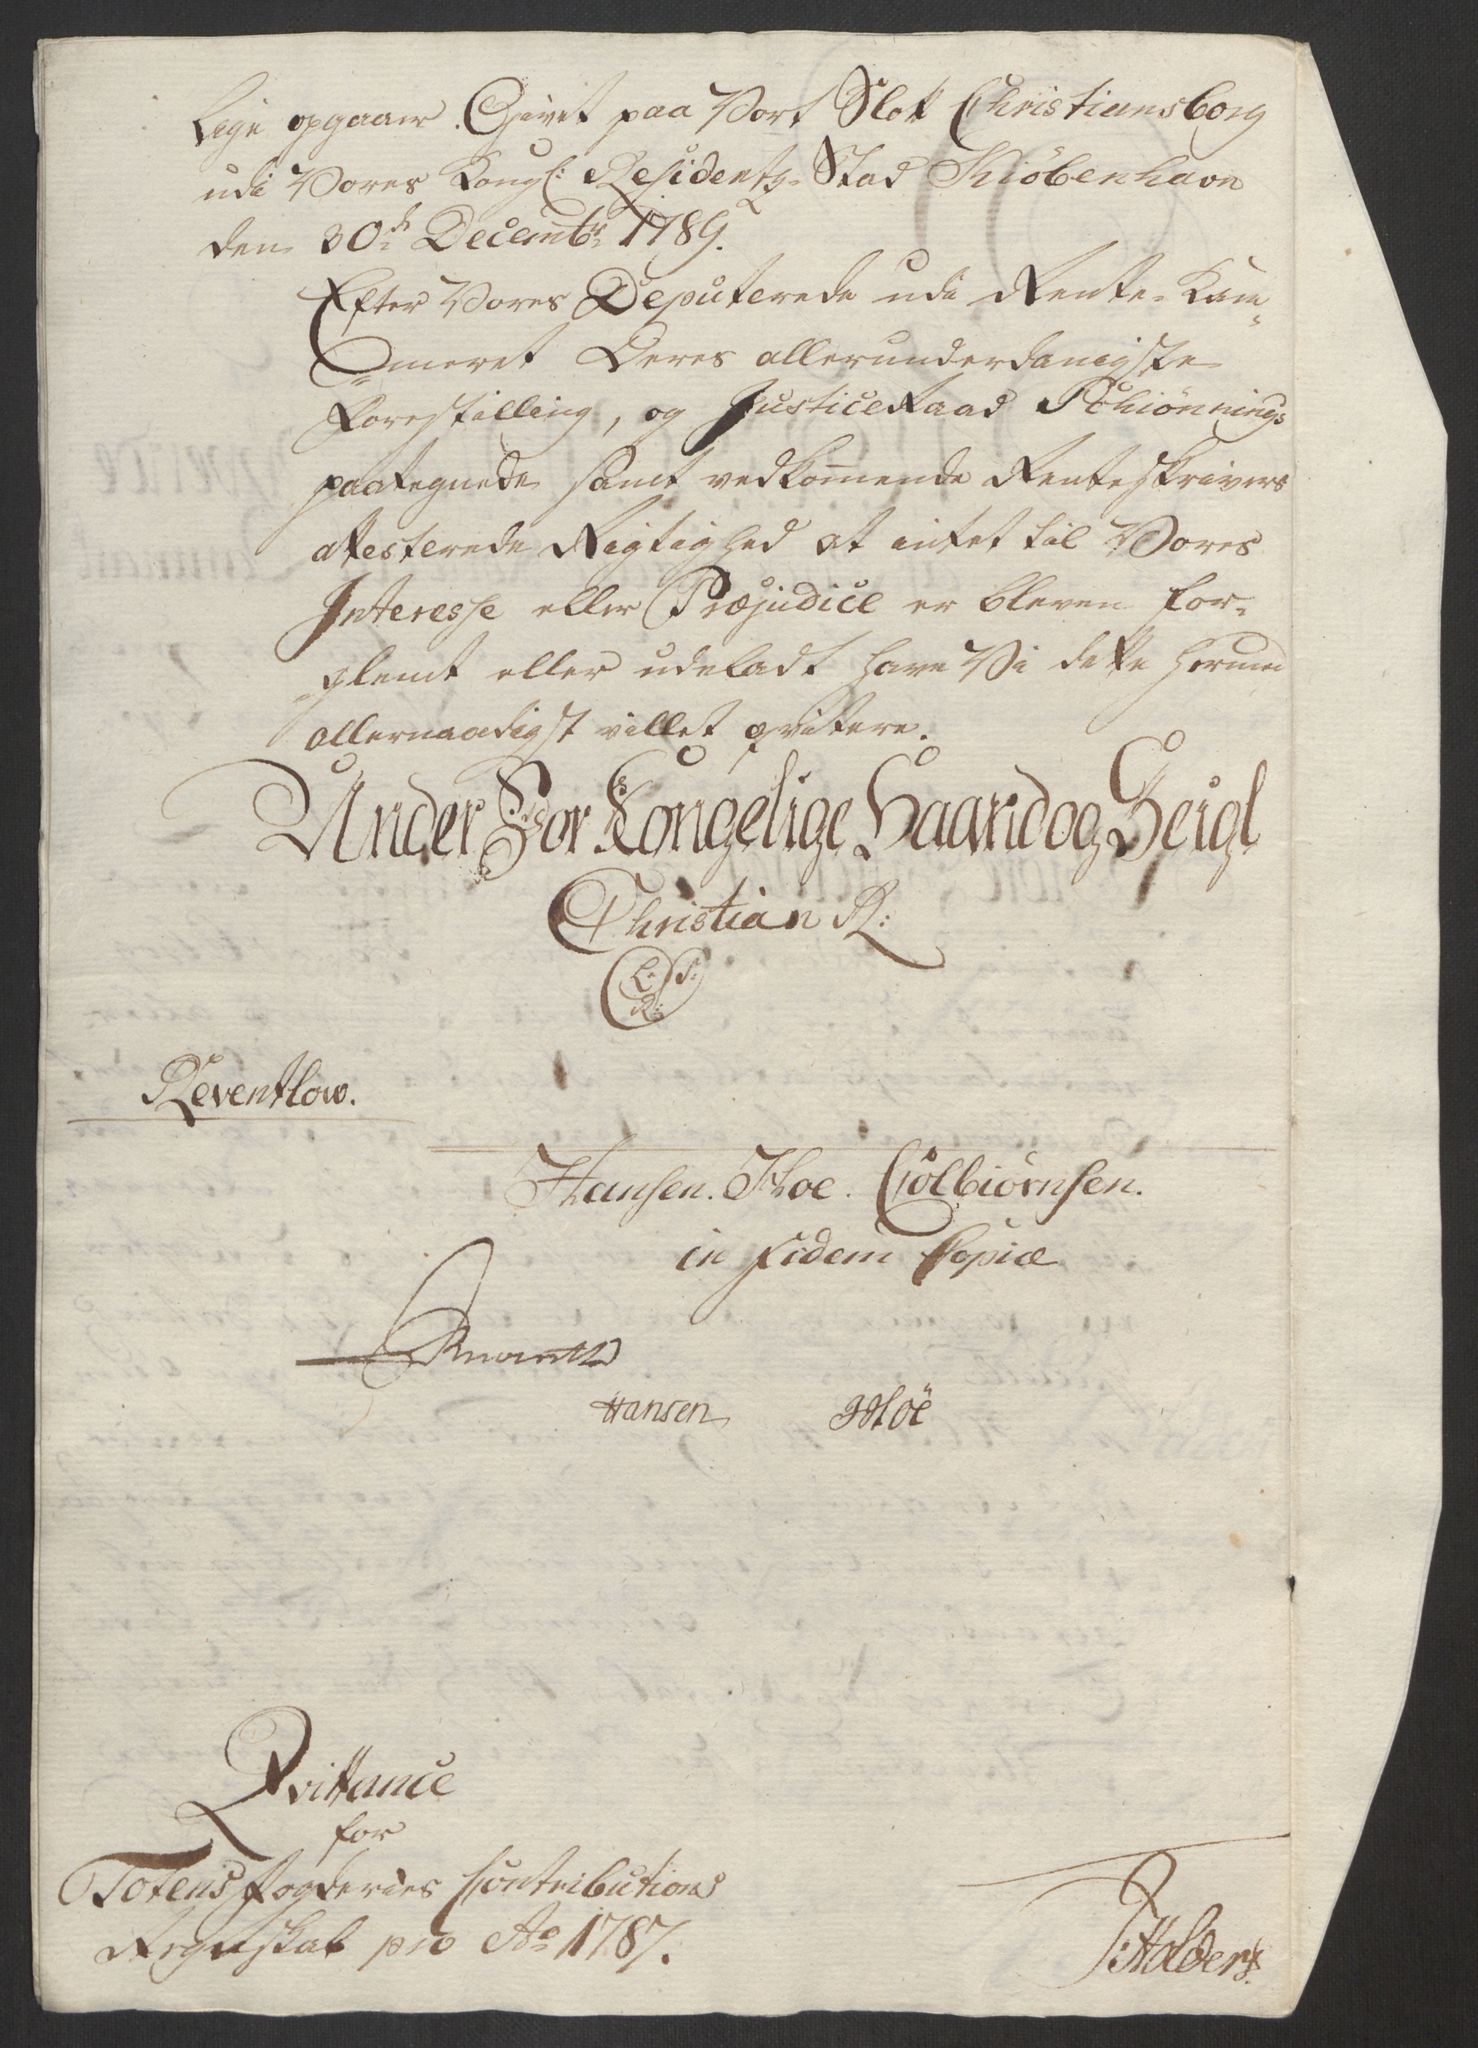 lige opgaaer. Givet paa Vort Slot Christiansborg
udi Vores Kongl: Residentz-Stad Kiöbenhavn
den 30te Decembr 1789.
Efter Vores Deputerede udi Rente-Kam-
meret Deres allerunderdanigste
Forestilling, og Justice Raad Schiönnings
paategnede samt vedkommende Renteskrivers
attesterede Rigtighed at intet til Vores
Interesse eller Præjudice er bleven for-
glemt eller udeladt have Vi dette hermed
allernaadigst villet qvitere.
Under Vor Kongelige Haand og Seigl
Christian R:
L: S:
R:
Reventlow.
Hansen. Hoe. Colbiörnsen.
in fidem Copiæ
Hansen Hoë
Qvittance
for
Totens Fogderies Contributions
Regnskab pro Ao 1787.